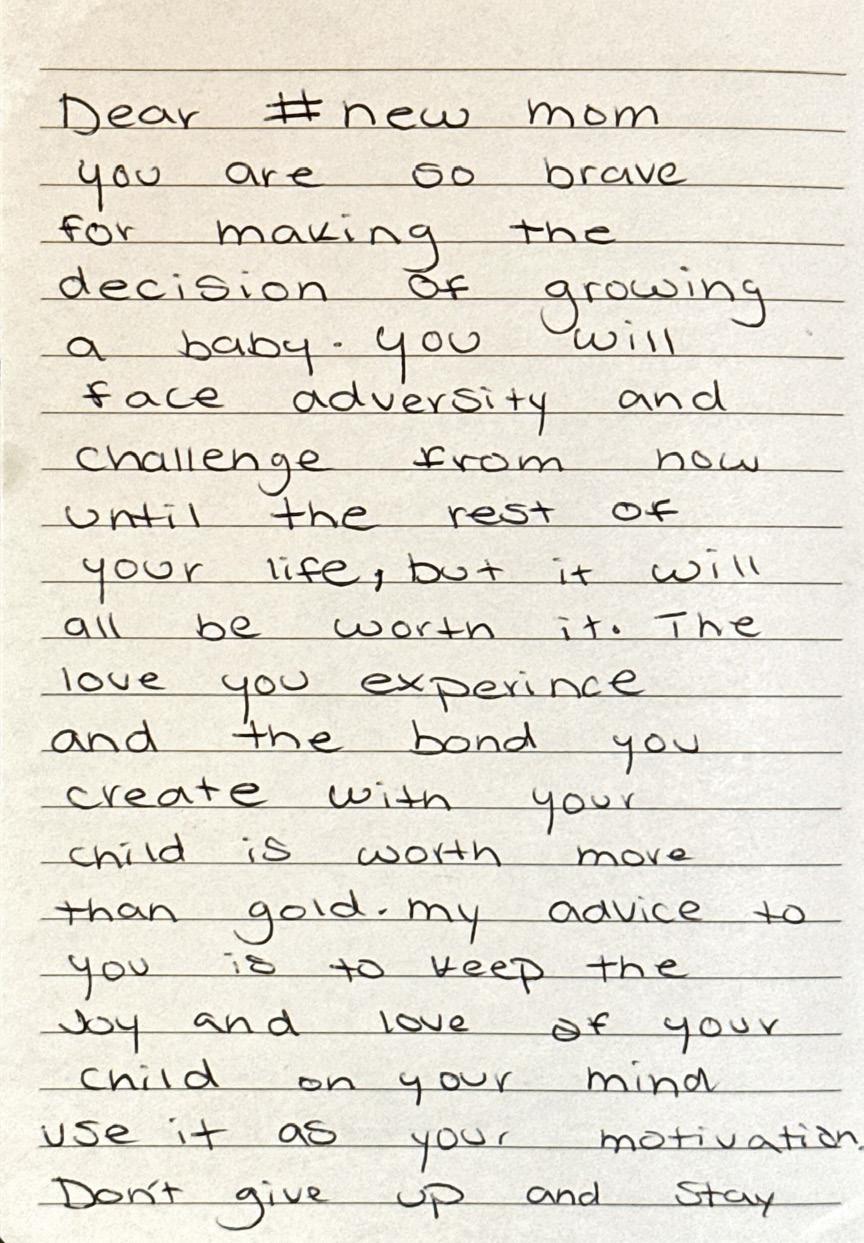 Dear # new mom
you are so brave
for making the
decision of growing
a baby. you will
face adversity and
challenge from now
until the rest of
your life, but it will
all be worth it. The
love you experince
and the bond you
create with your
child is worth more
than gold. my advice to
you is to keep the
Joy and love of your
child on your mind
use it as your motivation.
Don't give up and stay